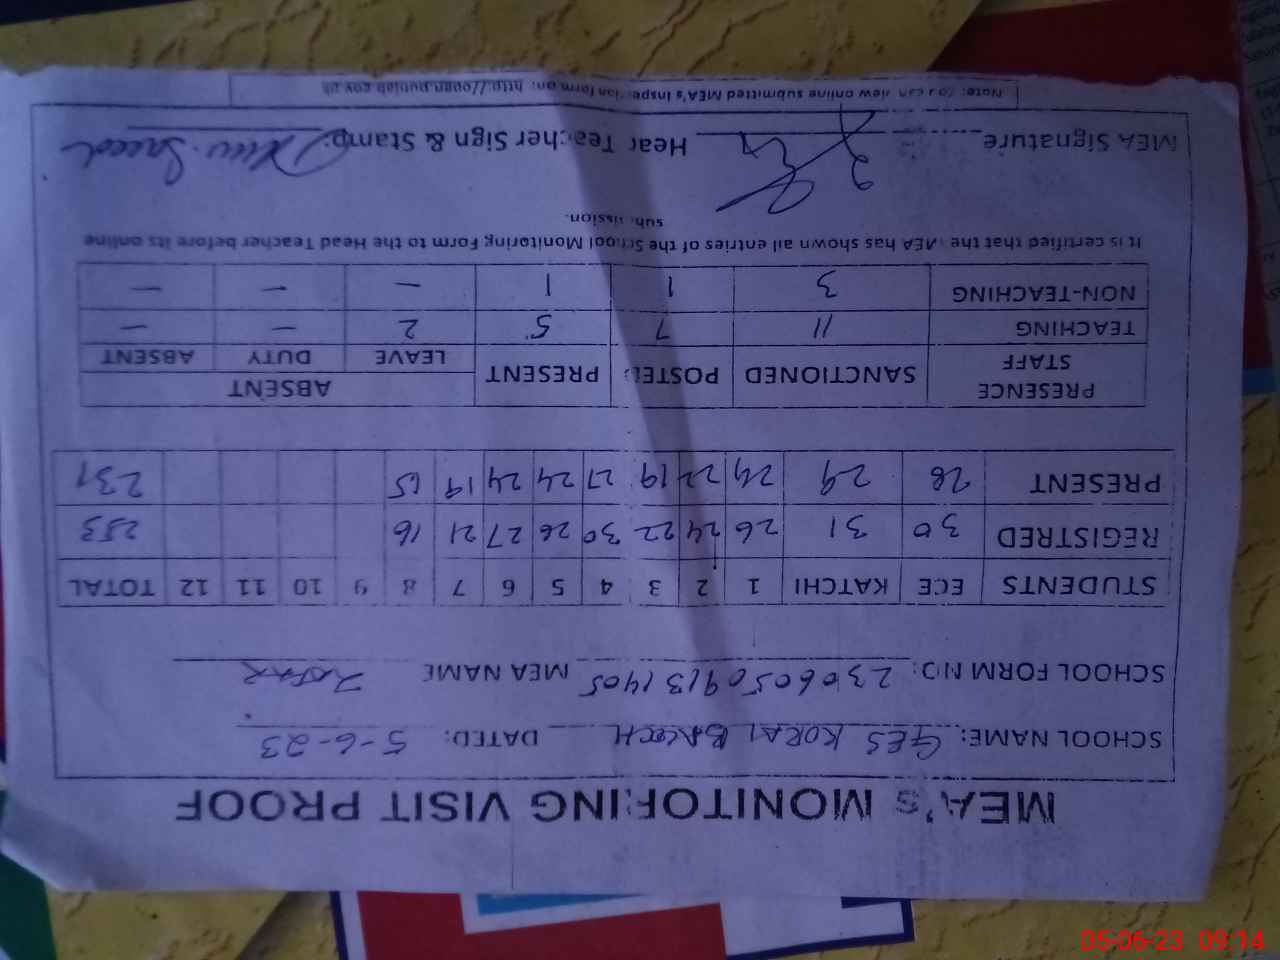 MEA's MONITORING VISIT PROOF
SCHOOL NAME: GES KORAI BALOCH DATED: 5-6-23
SCHOOL FORM NO: 23060509131405 MEA NAME
STUDENTS ECE KATCHI 1 2 3 4 5 6 7 8 9 10 11 12 TOTAL
REGISTRED 30 31 26 24 22 30 26 27 21 16 253
PRESENT 28 29 24 22 19 27 24 24 19 15 231
PRESENCE STAFF SANCTIONED POSTED PRESENT ABSENT
LEAVE DUTY ABSENT
TEACHING 11 7 5 2 — —
NON-TEACHING 3 1 1 — — —
It is certified that the MEA has shown all entries of the School Monitoring Form to the Head Teacher before its online
submission.
MEA Signature Hear Teacher Sign & Stamp:
Note: You can view online submitted MEA's inspection form on: http://open.punjab.gov.pk
05-06-23 09:14